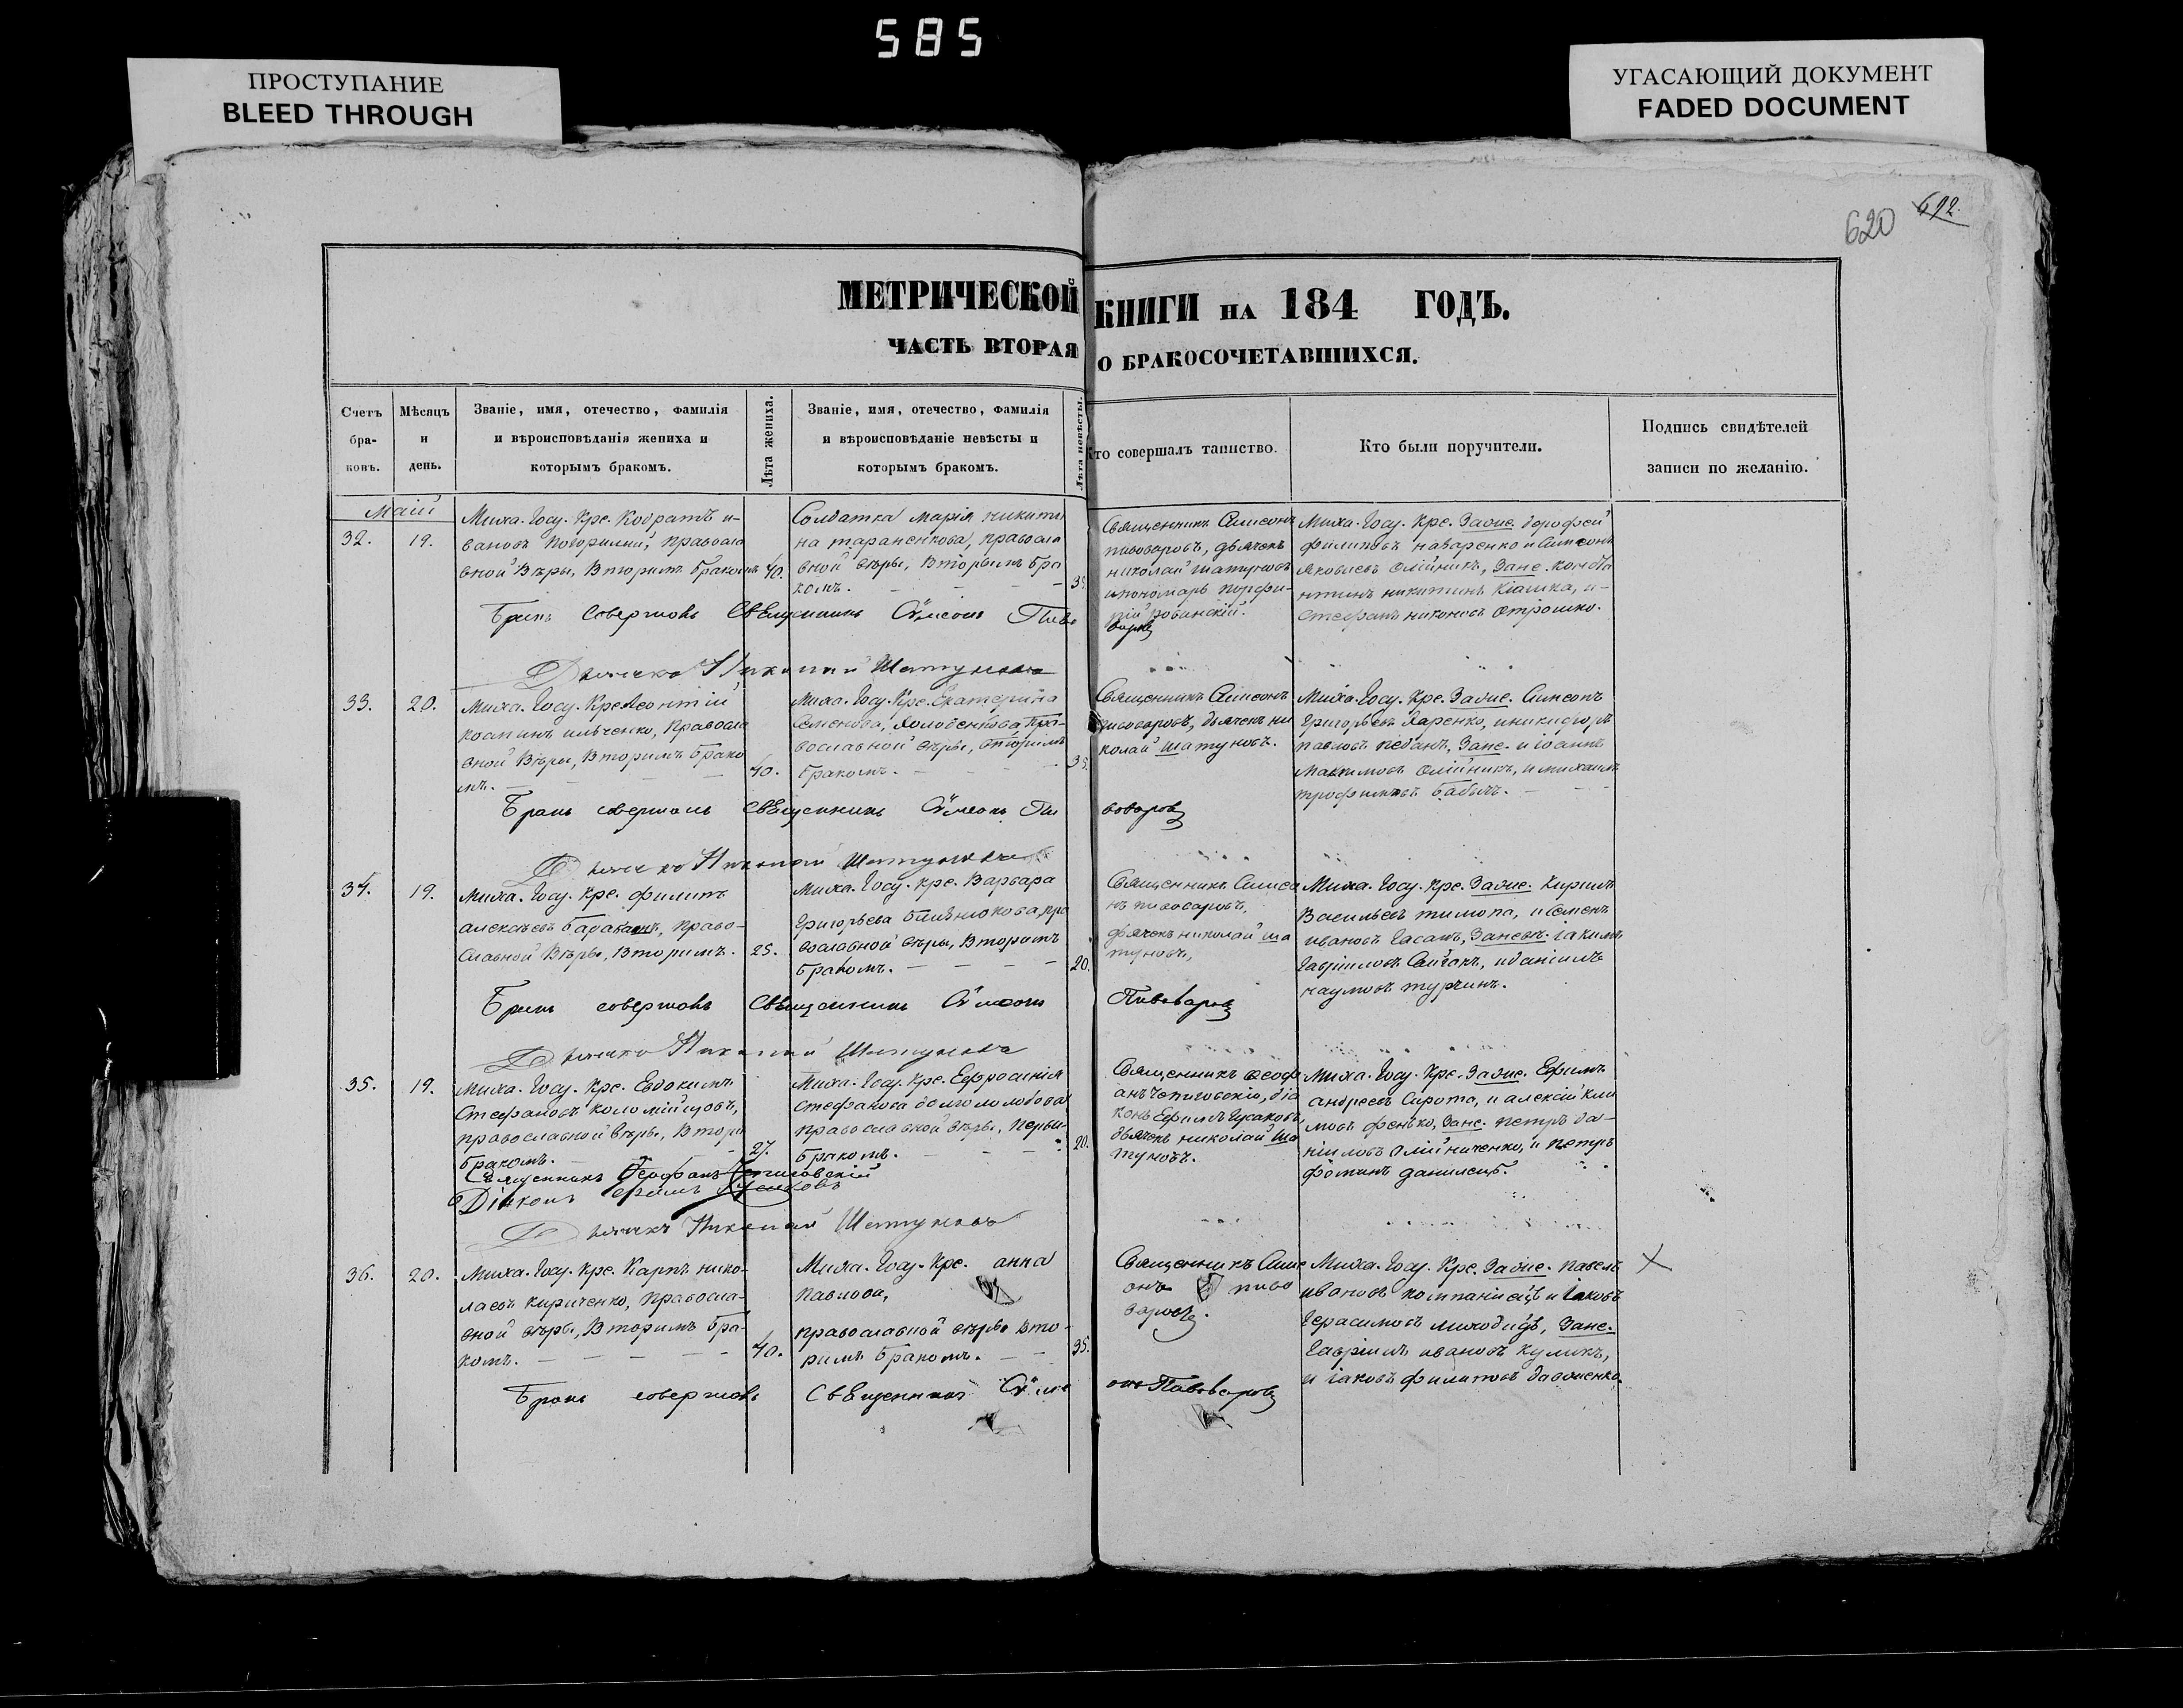 585
ПРОСТУПАНИЕ
BLEED THROUGH
УГАСАЮЩИЙ ДОКУМЕНТ
FADED DOCUMENT
620 612.
МЕТРИЧЕСКОЙ КНИГИ НА 184 ГОДЪ.
ЧАСТЬ ВТОРАЯ О БРАКОСОЧЕТАВШИХСЯ.
Счетъ
бра-
ковъ.
Мѣсяцъ
и
день.
Званіе, имя, отечество, фамилія
и вѣроисповѣданія жениха и
которымъ бракомъ.
Лѣта жениха.
Званіе, имя, отечество, фамилія
и вѣроисповѣданіе невѣсты и
которымъ бракомъ.
Лѣта невѣсты.
Кто совершалъ таинство.
Кто были поручители.
Подпись свидѣтелей
записи по желанію.
Маій
32.
19.
Миха. Госу. Кре. Кодратъ и-
вановъ Погорилый, Правосла
вной Вѣры, Вторимъ бракомъ
40.
Солдатка Марія Никити
на Тараненкова, Правосла
вной вѣры, Вторымъ бра
комъ.
Священникъ Симеонъ
пивоваровъ, дьячекъ
николай шатуновъ
и пономарь
Миха. Госу. Кре. дорофей
филиповъ назаренко и Симеонъ
Яковлевъ Олійникъ,
нтинъ никитинъ Кіашка, и-
Стефанъ никоновъ
Бракъ Совершовъ СвЕщенникъ Сѵмеонъ Пиво
варовъ
Дьячекъ Николай Шатуновъ
33.
20.
Миха. Госу. Кре Леонтій
козминъ ильченко, Правосла
вной Вѣры, Вторимъ брако
мъ.
40.
Миха. Госу. Кре. Екатерина
Семенова, Холоденкова, пра-
вославной вѣры, вторимъ
бракомъ.
Священникъ Симеонъ
пивоваровъ, дьячекъ ни
колай шатуновъ.
Миха. Госу. Кре. Симеонъ
Григорьевъ и никифоръ
павловъ и іоаннъ
Максимовъ Олійникъ, и михаилъ
трофимовъ бабычъ.
Бракъ совершовъ СвЕщенникъ Сѵмеонъ Пи
воваровъ
Дьячекъ Николай Шатуновъ
34.
19.
Миха. Госу. Кре. филипъ
алексѣевъ барабашъ, Право-
славной Вѣры, Вторимъ.
25.
Миха. Госу. Кре. Варвара
Григорьева пра
вославной вѣры, Вторимъ
бракомъ.
20.
Священникъ Симео
нъ пивоваровъ,
дьячекъ николай ша
туновъ,
Миха. Госу. Кре. Кирилъ
Васильевъ и Семенъ
ивановъ іакимъ
Гавріиловъ и даніилъ
наумовъ турчинъ.
Бракъ совершовъ СвЕщенникъ Сѵмеонъ
Пивоваровъ
Дьячекъ Николай Шатуновъ
35.
19.
Миха. Госу. Кре. Евдокимъ
Стефановъ коломійцовъ,
православной вѣры, Втори
бракомъ.
27.
Миха. Госу. Кре. Ефросинія
Стефанова
православной вѣры, Первы-
бракомъ.
20.
Священникъ Ѳеоф
анъ діа
конъ Ефимъ Гусаковъ,
дьячекъ николай ша
туновъ.
Миха. Госу. Кре. Ефимъ
андреевъ Сирота, и алексій кли
мовъ фенько, Петръ да-
ніиловъ Олійниченко, и Петръ
фоминъ данилецъ.
Священникъ Ѳеофанъ
Діаконъ Ефимъ Гусаковъ
Дьячекъ Николай Шатуновъ
36.
20.
Миха. Госу. Кре. Карпъ нико-
лаевъ кириченко, Правосла-
вной вѣры, Вторимъ бра-
комъ.
40.
Миха. Госу. Кре. анна
павлова,
православной вѣры Вто-
римъ бракомъ.
35.
Священникъ Симе
онъ пиво
варовъ.
Миха. Госу. Кре. павелъ
ивановъ компаніецъ и іаковъ
Герасимовъ
Гавріилъ ивановъ куликъ,
и іаковъ филиповъ
Бракъ совершовъ СвЕщенникъ Сѵме
онъ Пивоваровъ